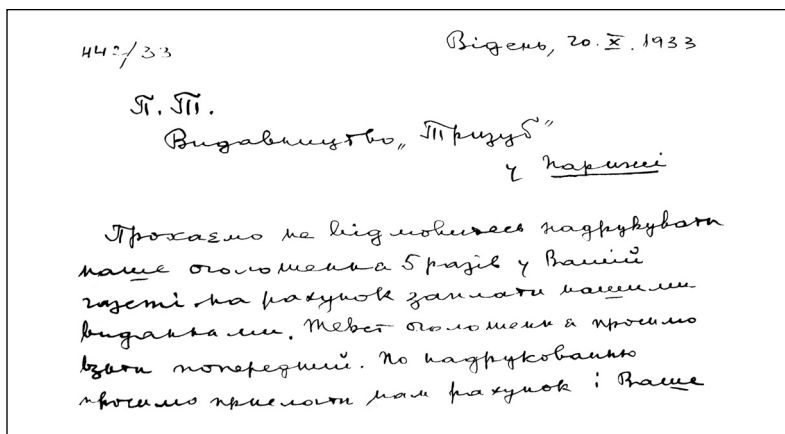 442/33 Відень, 20. X. 1933
П. Т.
Видавництво „Тризуб"
у Парижі
Прохаємо не відмовитесь надрукувати
наше оголошення 5 разів у Вашій
газеті на рахунок заплати нашими
виданнями. Текст оголошення просимо
взяти попередний. По надрукованню
просимо прислати нам рахунок і Ваше